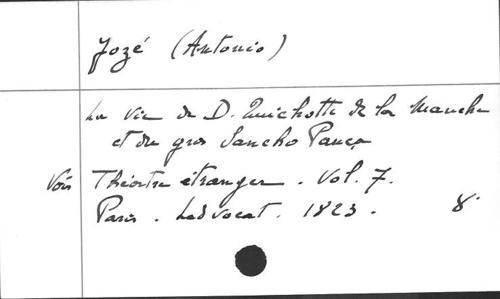 Jozé (Antonio)
La Vie de D. Quichotte de la Manche
et du gros Sancho Pança
Voir Théatre étranger. Vol. 7.
Paris. Ladvocat. 1823. 8°